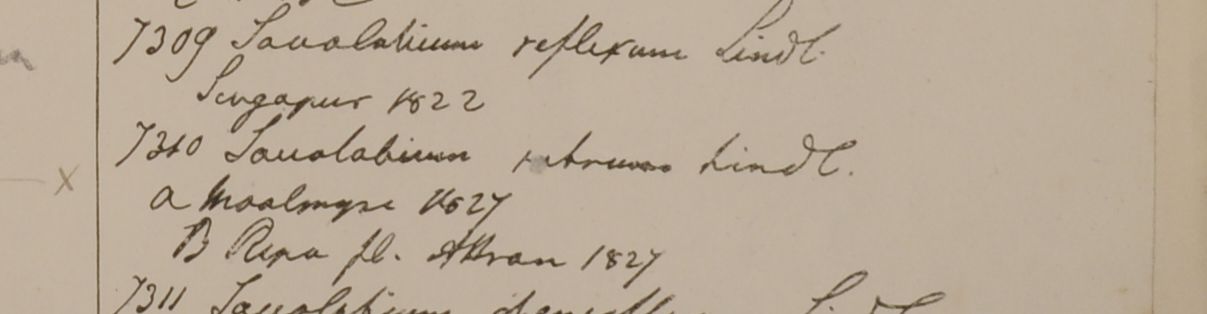 7309 Saccolabium reflexum Lindl.
Singapur 1822
7310 Saccolabium rubrum Lindl.
a Moalmyne 1827
B Ripa fl. Attran 1827
7311 Saccolabium